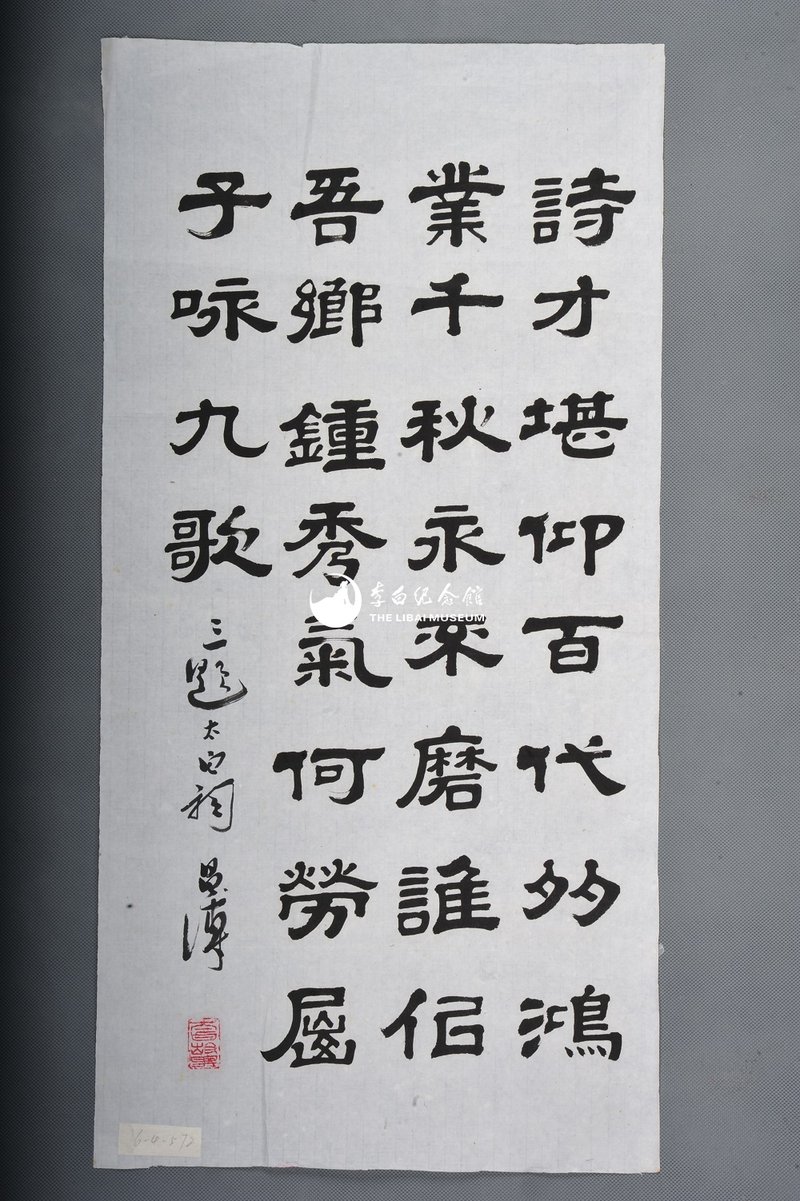 詩才堪仰百代多鴻
業千秋永磨誰佀
吾鄉鍾秀氣何勞屈
子咏九歌
三題太白祠
李白纪念館
THE LIBAI MUSEUM
6-4-572